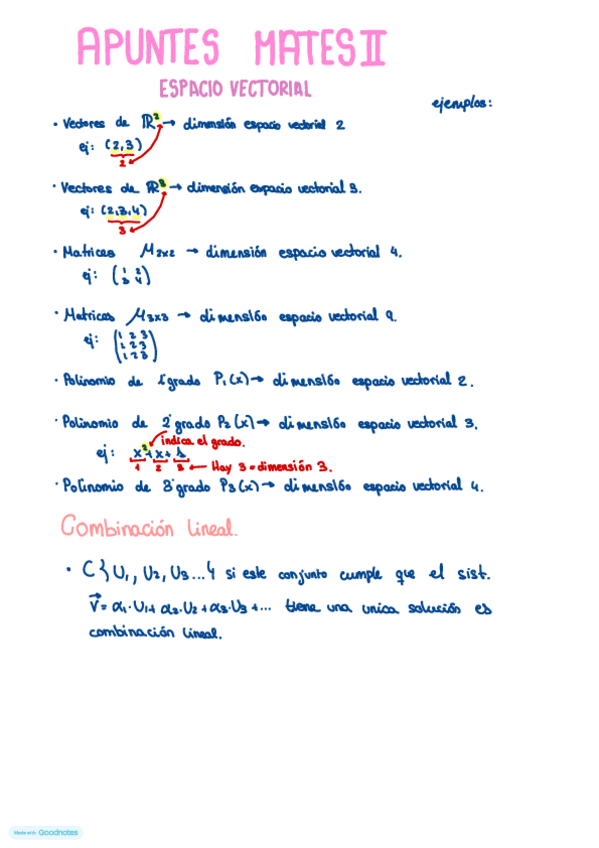 APUNTES MATES II
ESPACIO VECTORIAL
ejemplos:
• Vectores de ℝ² → dimensión espacio vectorial 2
ej: (2,3)
2
• Vectores de ℝ³ → dimensión espacio vectorial 3.
ej: (2,3,4)
3
• Matrices M2x2 → dimensión espacio vectorial 4.
ej: (1 2
3 4)
• Matrices M3x3 → dimensión espacio vectorial 9.
ej: (1 2 3
1 2 3
1 2 3)
• Polinomio de 1º grado P₁(x) → dimensión espacio vectorial 2.
• Polinomio de 2º grado P₂(x) → dimensión espacio vectorial 3.
indica el grado.
ej: x²+x+1
1 2 3 ← Hay 3 = dimensión 3.
• Polinomio de 3º grado P₃(x) → dimensión espacio vectorial 4.
Combinación lineal.
• C{U₁, U₂, U₃...} si este conjunto cumple que el sist.
V⃗ = α₁·U₁+α₂·U₂+α₃·U₃+... tiene una unica solución es
combinación lineal.
Made with Goodnotes